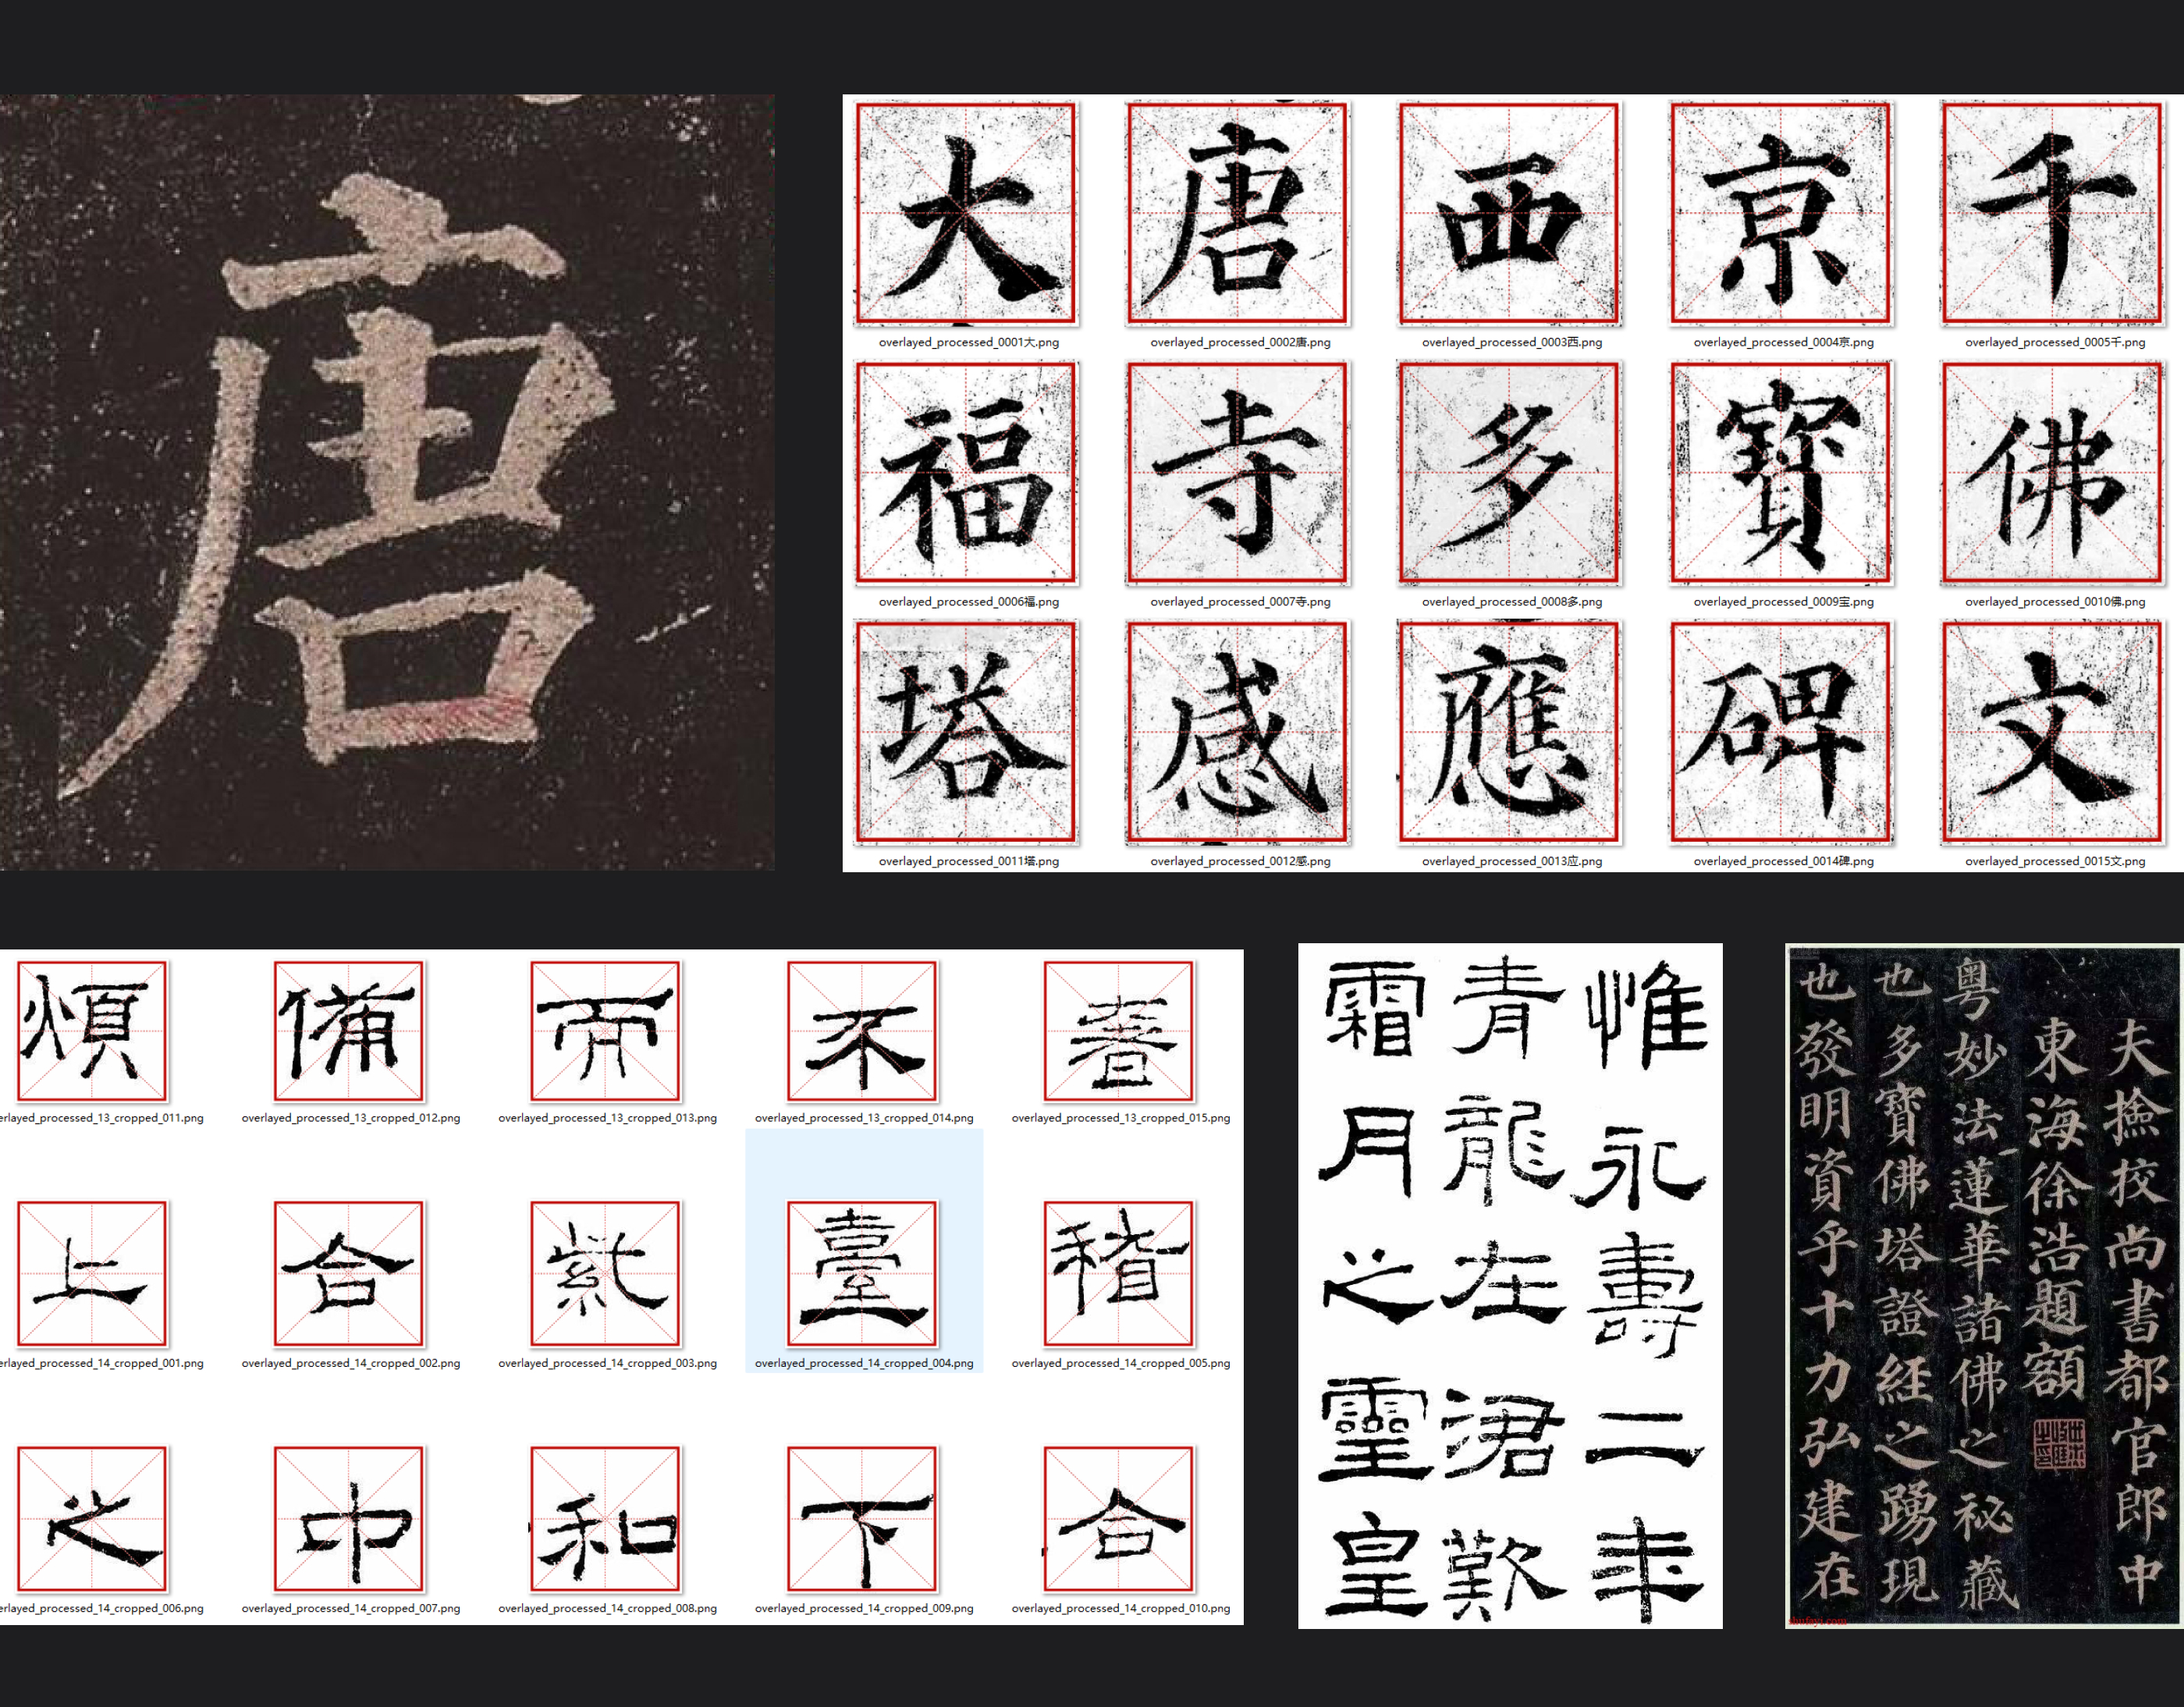 唐
大 唐 西 京 千
overlayed_processed_0001大.png overlayed_processed_0002唐.png overlayed_processed_0003西.png overlayed_processed_0004京.png overlayed_processed_0005千.png
福 寺 多 寶 佛
overlayed_processed_0006福.png overlayed_processed_0007寺.png overlayed_processed_0008多.png overlayed_processed_0009宝.png overlayed_processed_0010佛.png
塔 感 應 碑 文
overlayed_processed_0011塔.png overlayed_processed_0012感.png overlayed_processed_0013应.png overlayed_processed_0014碑.png overlayed_processed_0015文.png
煩 備 而 不 奢
erlayed_processed_13_cropped_011.png overlayed_processed_13_cropped_012.png overlayed_processed_13_cropped_013.png overlayed_processed_13_cropped_014.png overlayed_processed_13_cropped_015.png
上 合 紫 臺 稽
erlayed_processed_14_cropped_001.png overlayed_processed_14_cropped_002.png overlayed_processed_14_cropped_003.png overlayed_processed_14_cropped_004.png overlayed_processed_14_cropped_005.png
之 中 和 下 合
erlayed_processed_14_cropped_006.png overlayed_processed_14_cropped_007.png overlayed_processed_14_cropped_008.png overlayed_processed_14_cropped_009.png overlayed_processed_14_cropped_010.png
惟永壽二年
青龍在涒歎
霜月之靈皇
夫撿挍尚書都官郎中
東海徐浩題額
粤妙法蓮華諸佛之秘藏
也多寶佛塔證經之踴現
也發明資乎十力弘建在
shufayi.com